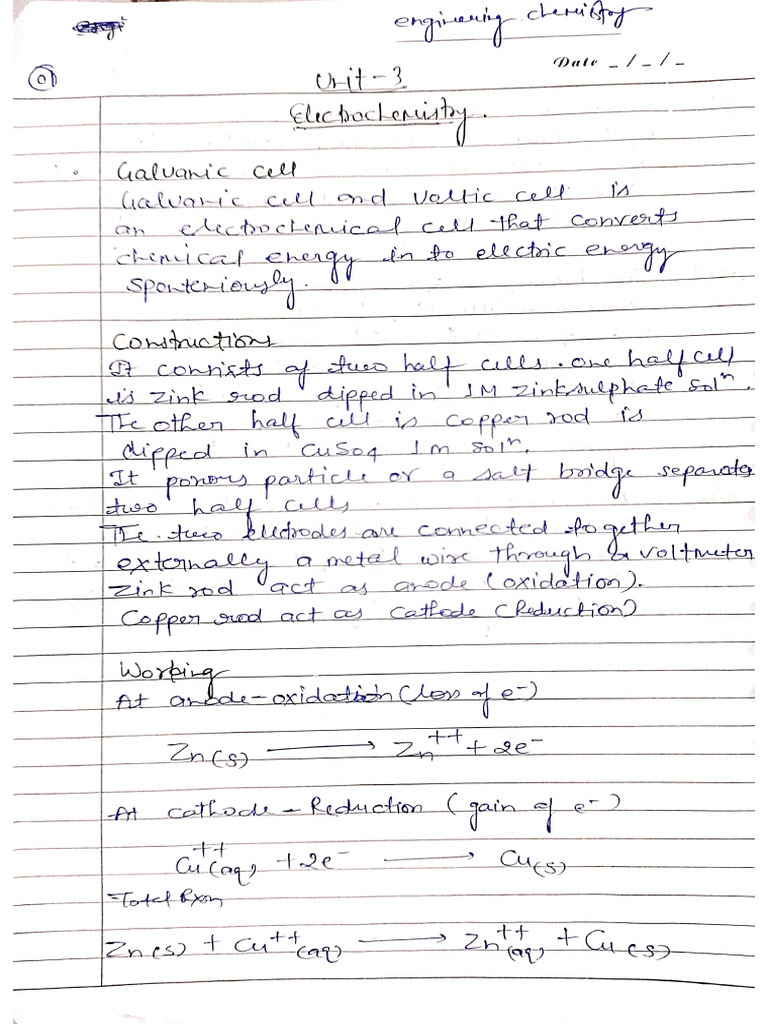 engineering chemistry
Date _ / _ / _
01
Unit - 3
Electrochemistry.
Galvanic cell
Galvanic cell and Voltic cell is
an electrochemical cell that converts
chemical energy in to electric energy
sponteriously.
Constructions
It consists of two half cells. one half cell
is zink rod dipped in 1M zinksulphate solⁿ.
The other half cell is copper rod is
dipped in CuSO4 1m solⁿ.
It porous particle or a salt bridge separates
two half cells
The two electrodes are connected together
externally a metal wire through a voltmeter
Zink rod act as anode (oxidation).
Copper rod act as cathode (Reduction)
Working
At anode - oxidation (loss of e⁻)
Zn(s) ⟶ Zn⁺⁺ + 2e⁻
At cathode - Reduction (gain of e⁻)
Cu⁺⁺(aq) + 2e⁻ ⟶ Cu(s)
Total Rxn
Zn(s) + Cu⁺⁺(aq) ⟶ Zn⁺⁺(aq) + Cu(s)